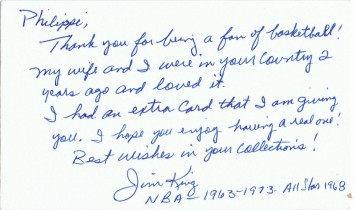 Philippi,
Thank you for being a fan of basketball!
My wife and I were in your Country 2
years ago and loved it.
I had an extra Card that I am giving
you. I hope you enjoy having a real one!
Best wishes in your Collections!
Jim King
NBA - 1963-1973. All Star 1968